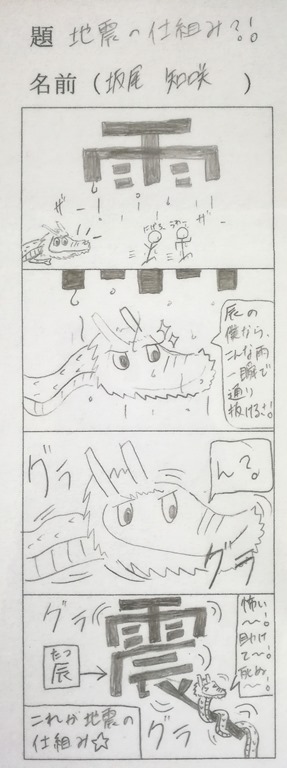 題 地震の仕組み?!
名前(坂尾 知咲)
雨
ザー!
ザー!
にげろ
うわー
辰の
僕なら、
こんな雨
一瞬で
通り
抜けるさ!
ん?
グラ
グラ
グラ
グラ
震
怖い
〜!
助け
て〜!
死ぬ
〜!
たつ
辰
これが地震の
仕組み☆